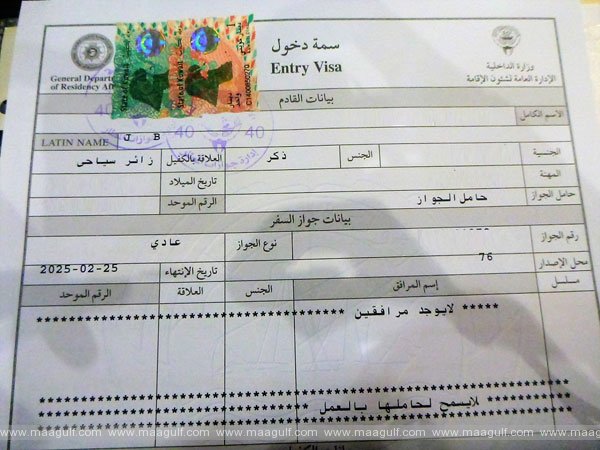 سمة دخول
Entry Visa
وزارة الداخلية
الإدارة العامة لشئون الإقامة
General Depart
of Residency Aff
بيانات القادم
الاسم الكامل
LATIN NAME J B
الجنسية الجنس ذكر العلاقة بالكفيل زائر سياحي
المهنة تاريخ الميلاد
حامل الجواز حامل الجواز الرقم الموحد
بيانات جواز السفر
رقم الجواز نوع الجواز عادي
محل الإصدار 76 تاريخ الإنتهاء 2025-02-25
مسلسل إسم المرافق الجنس العلاقة الرقم الموحد
***** لايوجد مرافقين *****
لايسمح لحاملها بالعمل
40 40
www.maagulf.com www.maagulf.com www.maagulf.com www.maagulf.com www.maagulf.com